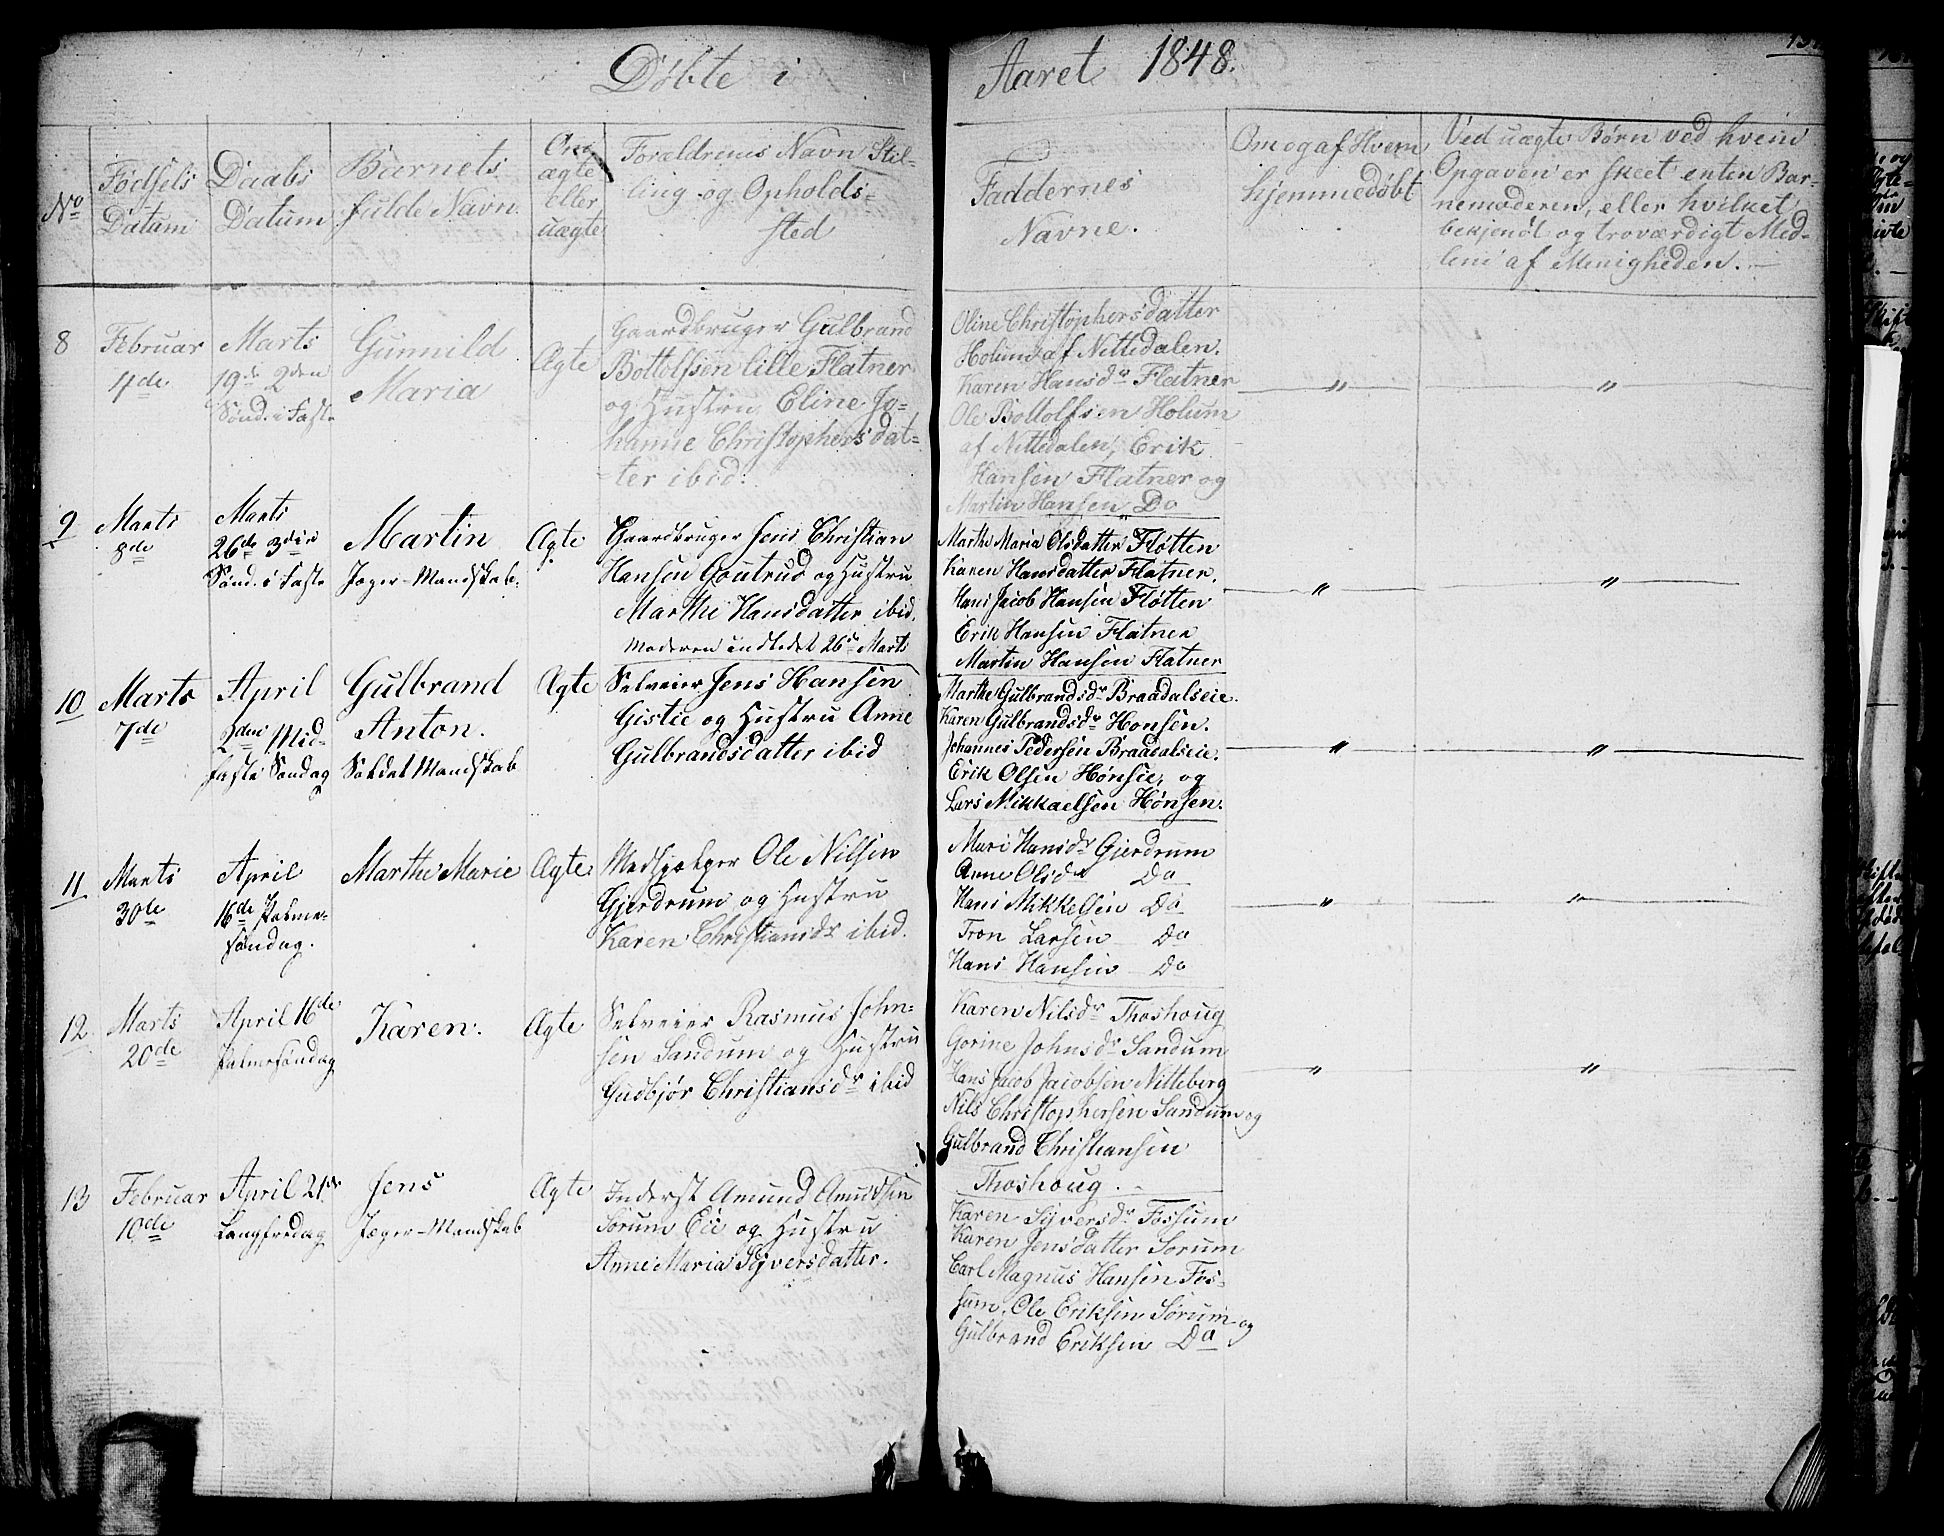 Døbte i Aaret 1848.
No
Fødsels Datum
Daabs Datum
Barnets fulde Navn.
Om ægte eller uægte
Forældrenes Navn Stil-
ling og Opholds-
sted
Faddernes
Navne.
Om og af Hvem
hjemmedøbt
Ved uægte Børn ved hvem
Opgaven er skeet enten Bar-
nemoderen, eller hvilket
bekjendt og troværdigt Med-
lem af Menigheden.
8
Februar
4de
Marts
19de 2den
Sønd. i Faste
Gunnild
Maria
Ægte
Gaardbruger Gulbrand
Bottolfsen lille Flatner
og Hustru Eline Jo-
hanne Christophersdat-
ter ibid.
Oline Christophersdatter
Holum af Nittedalen.
Karen Hansdr Flatner
Ole Bottolfsen Holum
af Nittedalen, Erik
Hansen Flatner og
Martin Hansen Do
"
"
9
Marts
8de
Marts
26de 3die
Sønd. i Faste
Martin
Jæger-Mandskab.
Ægte
Gaardbruger Jens Christian
Hansen Goutrud og Hustru
Marthe Hansdatter ibid.
Moderen indledet 26de Marts
Marthe Maria Olsdatter Fløtten
Karen Hansdatter Flatner.
Hans Jacob Hansen Fløtten
Erik Hansen Flatner
Martin Hansen Flatner
"
"
10
Marts
7de
April
2den Mid-
faste Søndag
Gulbrand
Anton.
Soldat Mandskab
Ægte
Selveier Jens Hansen
Gistie og Hustru Anne
Gulbrandsdatter ibid
Marthe Gulbrandsdr Braadalseie.
Karen Gulbrandsdr Honsen.
Johannes Pedersen Braadalseie.
Erik Olsen Hønsie, og
Lars Mikkaelsen Hønsen.
"
"
11
Marts
30te
April
16de Palme-
søndag.
Marthe Marie
Ægte
Medhjælper Ole Nilsen
Gjerdrum og Hustru
Karen Christiansdr ibid.
Mari Hansdr Gjerdrum
Anne Olsdr Do
Hans Mikkelsen Do
Tron Larsen Do
Hans Hansen Do
"
"
12
Marts
20de
April 16de
Palmesøndag
Karen.
Ægte
Selveier Rasmus John-
sen Sandum og Hustru
Gudbjør Christiansdr ibid
Karen Nilsdr Thoshoug
Gorine Johnsdr Sandum
Hans Jacob Jacobsen Nitteberg
Nils Christophersen Sandum og
Gulbrand Christiansen
Thoshoug.
"
"
13
Februar
10de
April 21de
Langfredag
Jens
Jæger-Mandskab
Ægte
Inderst Amund Amudsen
Sørum Eie og Hustru
Anne Maria Syversdatter.
Karen Syversdr Fossum
Karen Jensdatter Sorum
Carl Magnus Hansen Fos-
sum, Ole Eriksen Sørum og
Gulbrand Eriksen Do